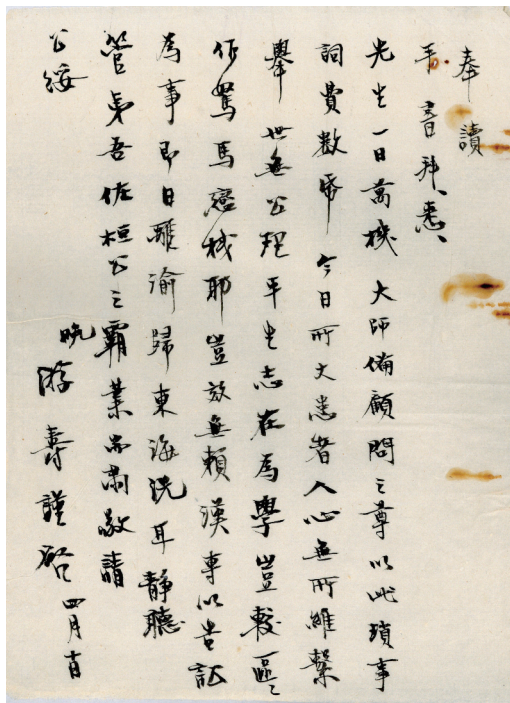 奉讀
手書拜悉
先生一日萬機大師備顧問之尊以此瑣事
詞費數帋今日所大患者人心無所維繫
舉世無公理平生志在為學豈較區〻
作駑馬戀棧耶豈效無賴漢專以告訐
為事即日離渝歸東海洗耳靜聽
管夷吾佐桓公之霸業肅敬請
公綏
晚游壽謹啓 四月十日